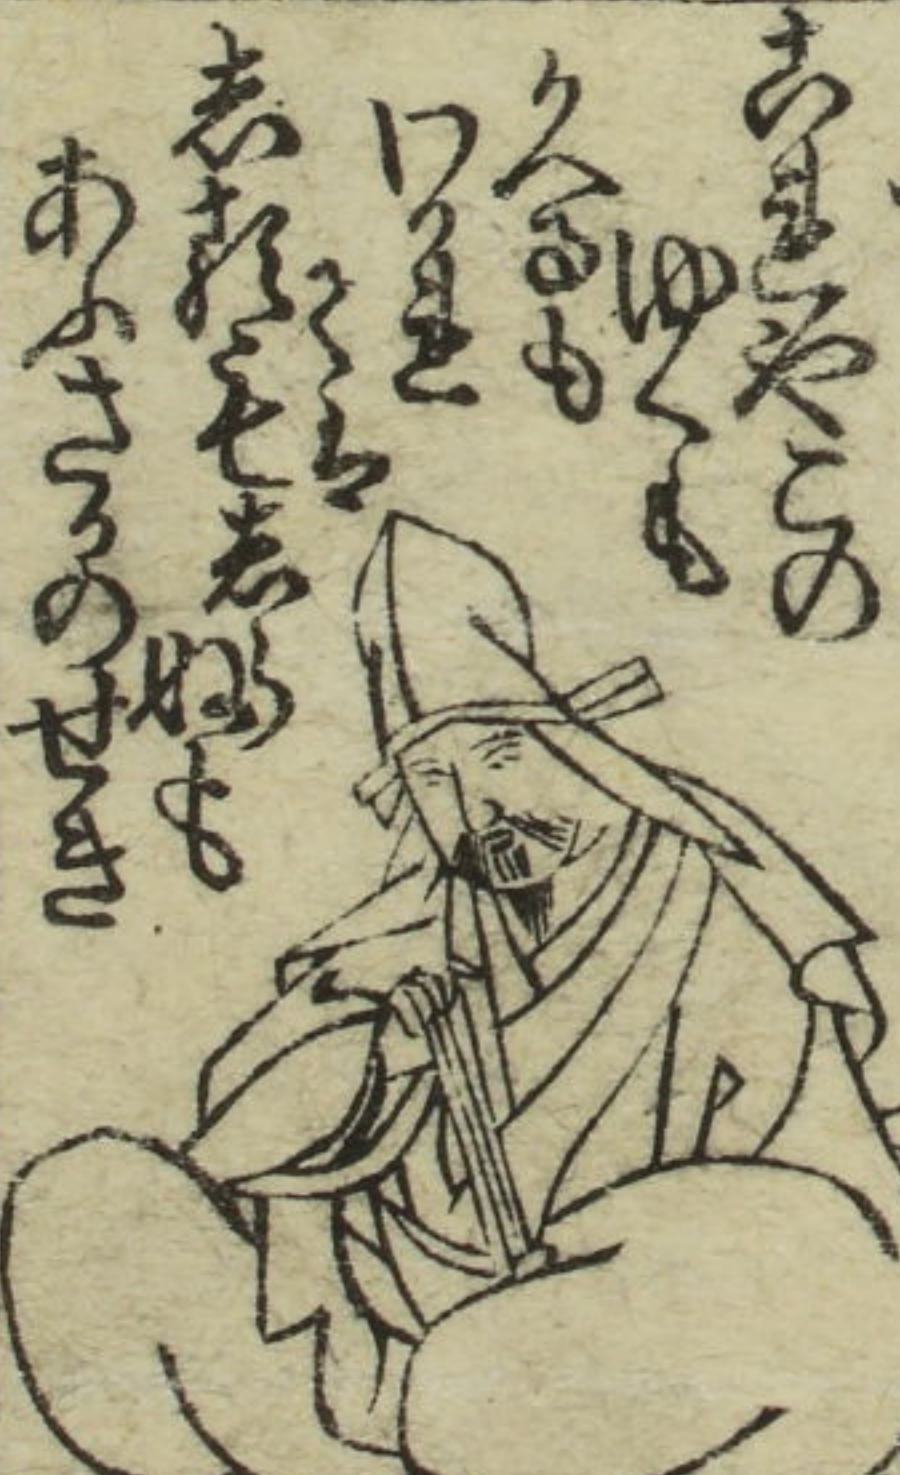 これやこの
ゆくも
かへるも
わかれ
ては
しるもしらぬも
あふさかのせき